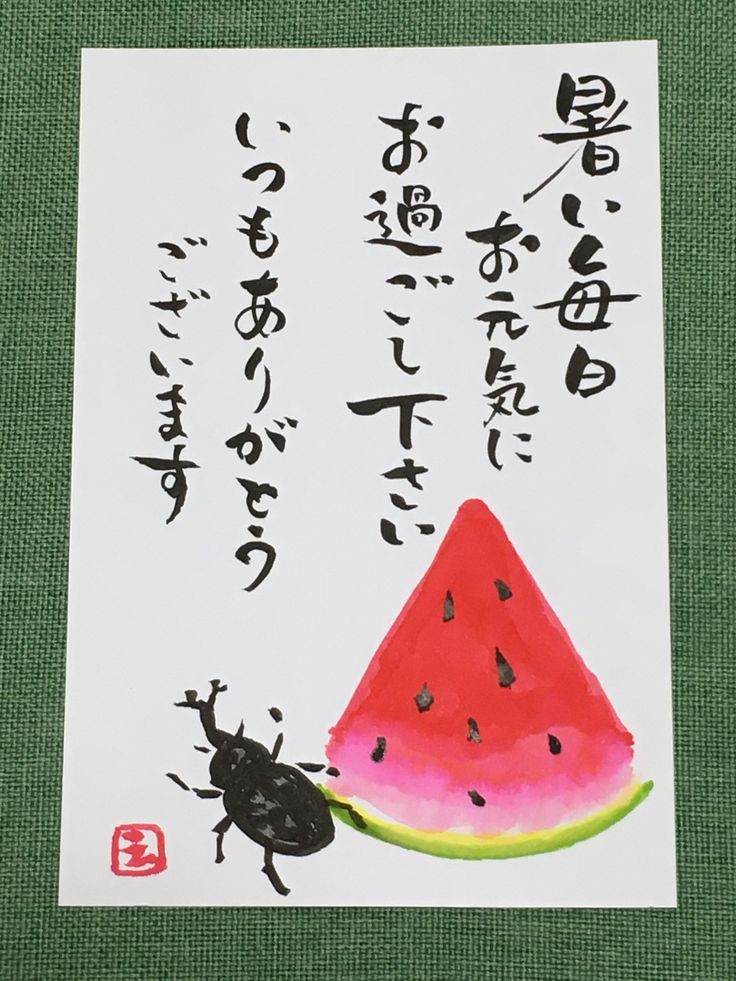 暑い毎日
お元気に
お過ごし下さい
いつもありがとう
ございます